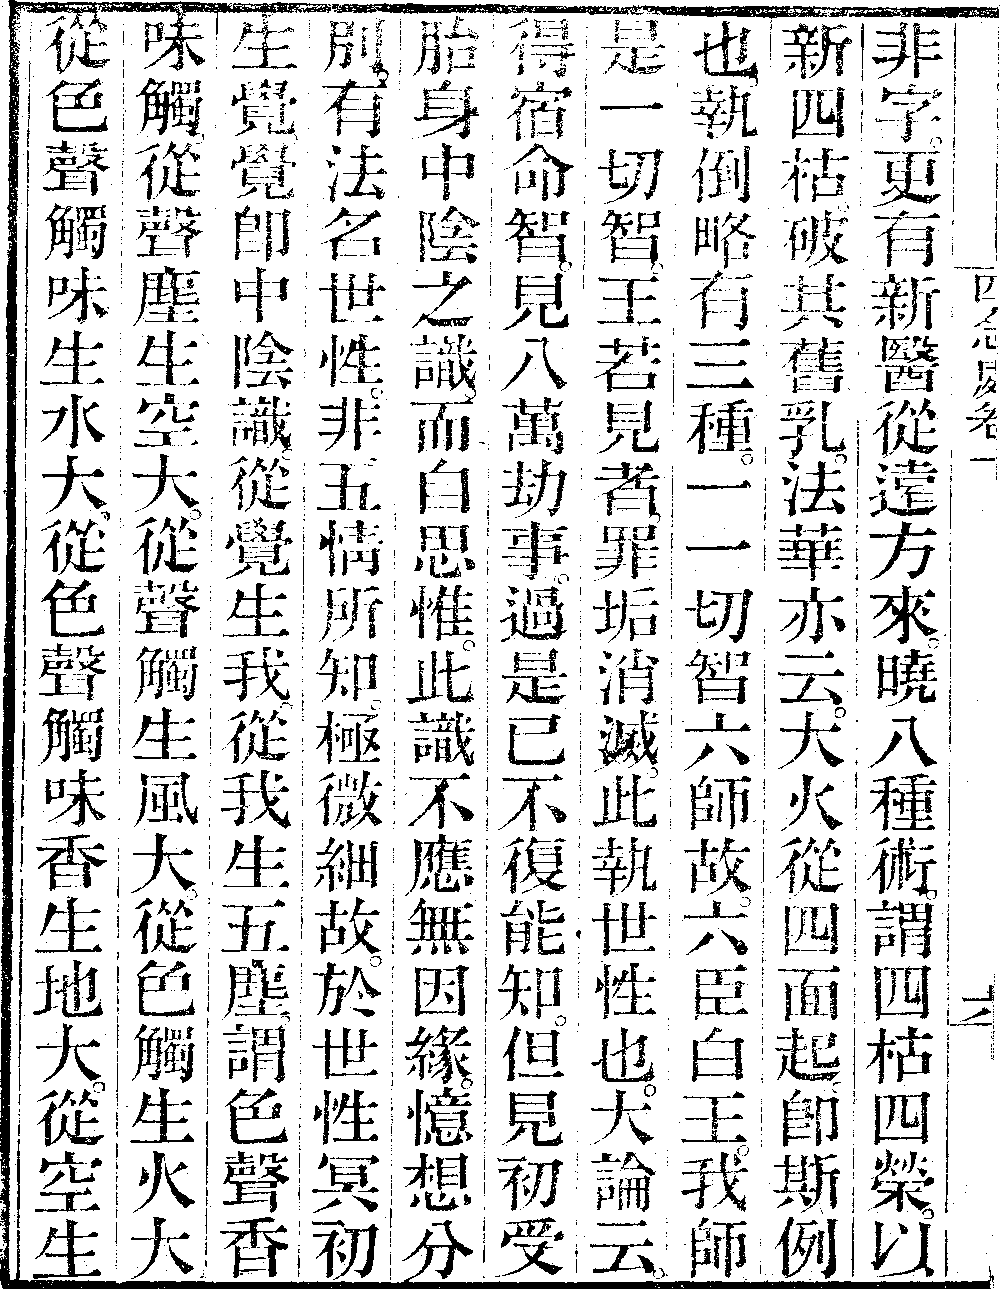 非字。更有新醫從遠方來。曉八種術。謂四枯四榮。以
新四枯破其舊乳。法華亦云。大火從四面起。卽斯例
也。執倒略有三種。一一切智六師故。六臣白王。我師
是一切智。王若見者。罪垢消滅。此執世性也。大論云。
得宿命智。見八萬劫事。過是已不復能知。但見初受
胎身中陰之識。而自思惟。此識不應無因緣。憶想分
別。有法名世性。非五情所知。極微細故。於世性冥初
生覺。覺卽中陰識。從覺生我。從我生五塵。謂色聲香
味觸。從聲塵生空大。從聲觸生風大。從色觸生火大
從色聲觸味生水大。從色聲觸味香生地大。從空生